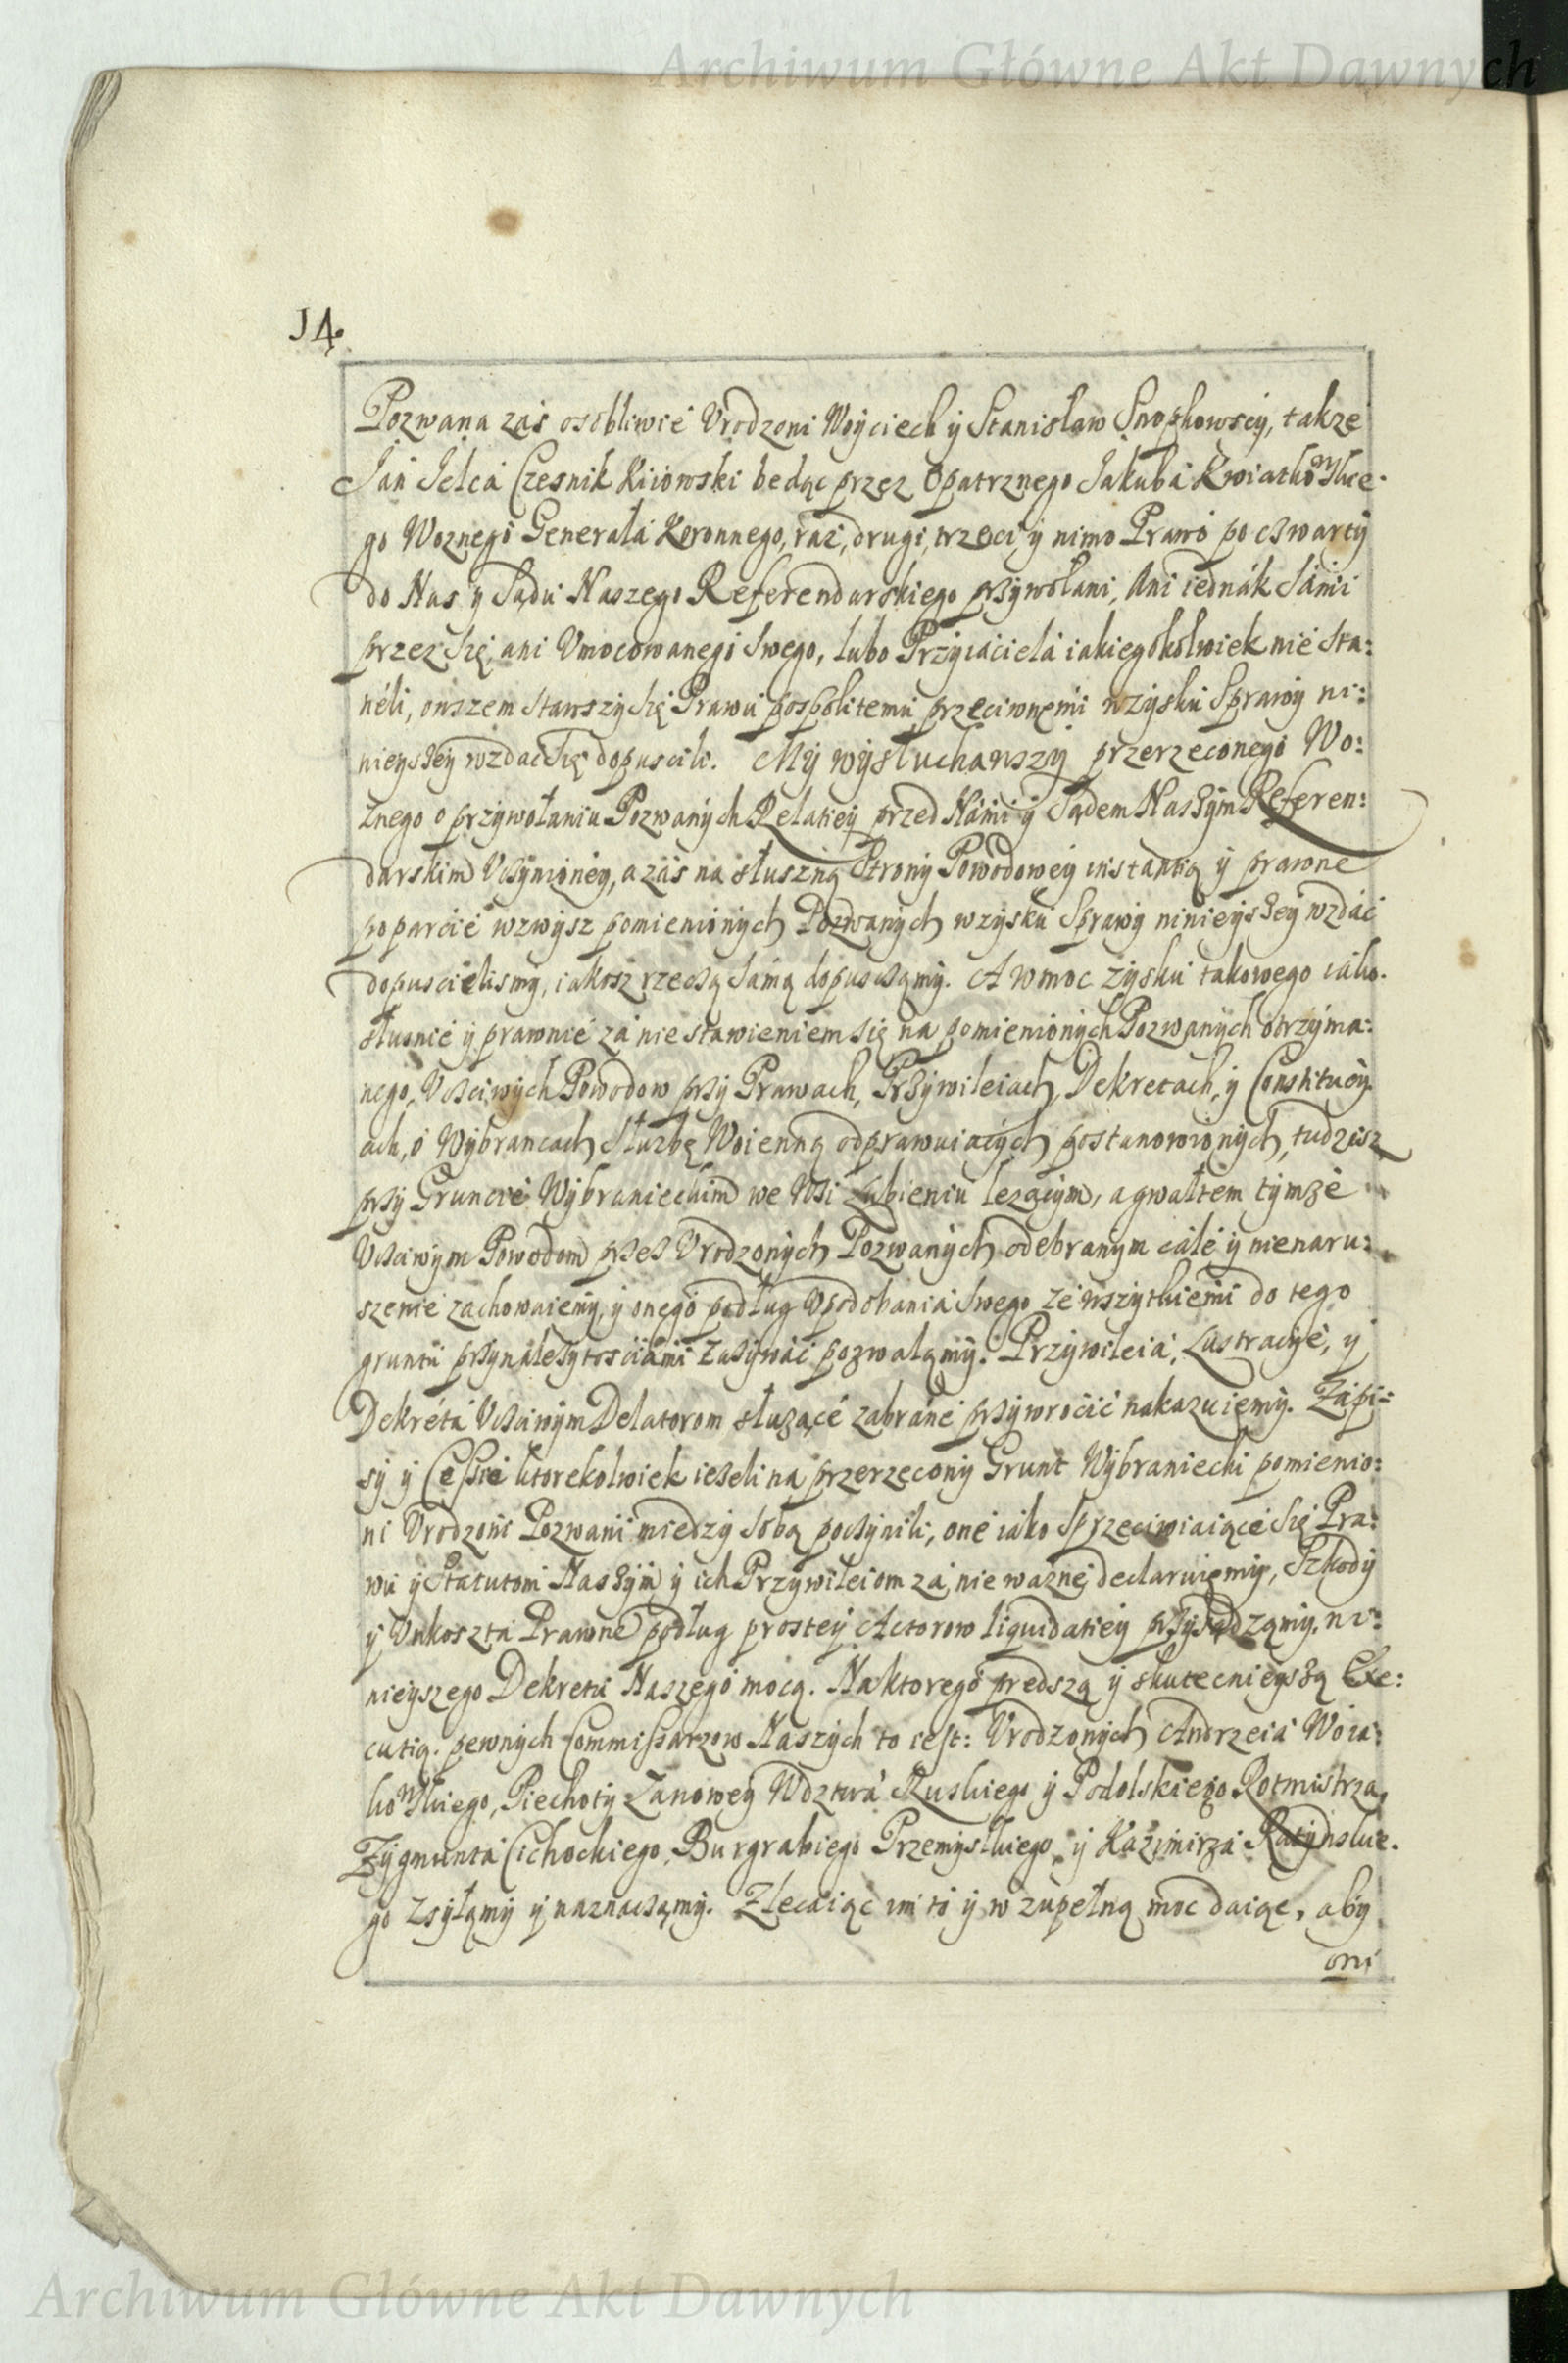 Archiwum Główne Akt Dawnych
14.
Pozwana zaś osobliwie Vrodzoni Woyciech ÿ Stanisław Snopkowscÿ, takze
Jan Jelca Czesnik Kiiowski bedąc przez Opatrznego Jakuba Kwiatkowskie-
go Woznego Generała Koronnego, raz, drugi, trzeci ÿ nimo Prawo po czwartÿ
do Nas ÿ Sądu Naszego Referendarskiego przÿwołani, Ani iednák Sámi
przez Się, ani Vmocowanego Swego, lubo Przÿiaciela iakiegokolwiek nie Sta:
néli, owszem Stawszÿ Się Prawu pospolitemu przeciwnemi wzÿsku Sprawÿ ni:
nieyszeÿ wzdac Się dopuscili. Mÿ wÿsłuchawszÿ przerzeconego Wo:
znego o przÿwołaniu Pozwanÿch Relatieÿ przed Námi ÿ Sądem Naszÿm Referen:
darskim Vczÿnioneÿ, a záś na słuszną Stronÿ Powodoweÿ instantią ÿ prawne
poparcie wzwÿsz pomienionÿch Pozwanÿch wzÿsku Sprawÿ ninieÿszeÿ wzdáć
dopuscielismÿ, iakosz rzeczą Samą dopusczamÿ. A w moc zÿsku takowego iáko-
słusnie ÿ prawnie zá nie stawieniem Się na pomienionÿch Pozwanÿch otrzÿma:
nego, Vczciwÿch Powodow przÿ Prawach, Przÿwileiach, Dekretach, ÿ Constitucÿ
ach, o Wÿbrancach Służbę Woienną odprawuiącÿch postanowionÿch, tudzież
przÿ Gruncie Wÿbranieckim we Wsi Lubieniu lezącÿm, a gwałtem tÿmże
Vcziwÿm Powodom przez Vrodzonÿch Pozwanÿch odebranÿm cále ÿ nienaru:
szenie zachowaiemÿ, ÿ onego podług Vpodobania Swego ze wszÿtkiemi do tego
gruntu przÿnáleżÿtosciámi zażÿwáć pozwalamÿ. Przÿwileia, Lustracÿie, ÿ
Dekréta Vcziwÿm Delatorom służącé zabráne przÿwroćić nakazuiemÿ. Zápi=
sÿ ÿ Cessie ktorekolwiek ieżeli na przerzeconÿ Grunt Wÿbraniecki pomienio:
ni Vrodzoni Pozwani miedzÿ Sobą poczÿnili, one iáko Sprzeciwiaiące Się Pra:
wu ÿ Statutom Naszÿm ÿ ich Przÿwileiom zá nie ważne declaruiemÿ, Szkodÿ
ÿ Vnkoszta Prawne podług prosteÿ Actorow liquidatieÿ przÿsądzamÿ, ni:
nieÿszego Dekretu Naszego mocą. Na ktorego predszą ÿ skutecznieÿszą Exe:
cutią. pewnÿch Commissarzow Naszÿch to iest: Vrodzonÿch Andrzeia Woia:
kowskiego, Piechotÿ Łanoweÿ Wdztwa Ruskiego ÿ Podolskiego Rotmistrza,
Zÿgmunta Cichockiego, Burgrabiego Przemÿskiego, ÿ Kazimirza Ratÿnskie-
go zsÿłamÿ ÿ naznaczamÿ. Zlecaiąc im to ÿ w zupełną moc daiąc, abÿ
oni
Archiwum Główne Akt Dawnych